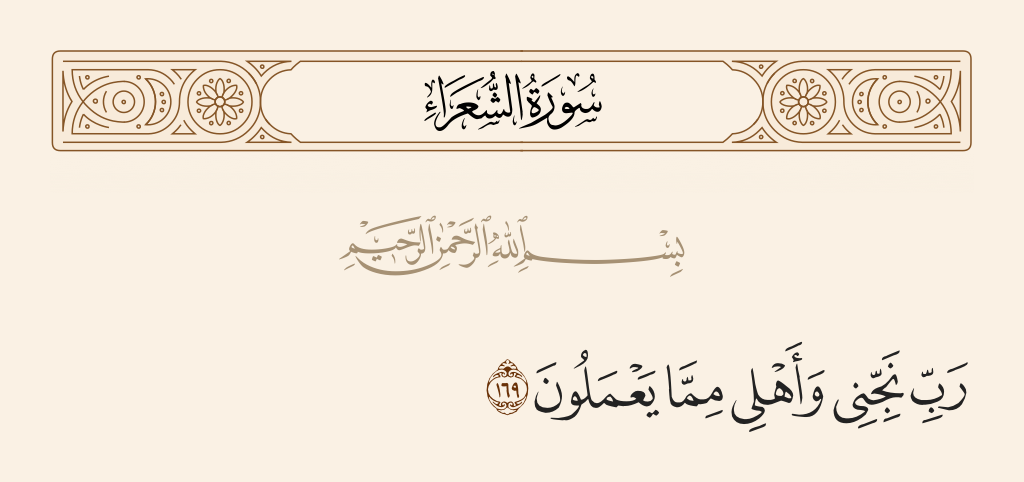 سُورَةُ الشُّعَرَاءِ
بِسْمِ ٱللَّهِ ٱلرَّحْمَٰنِ ٱلرَّحِيمِ
رَبِّ نَجِّنِى وَأَهْلِى مِمَّا يَعْمَلُونَ ١٦٩